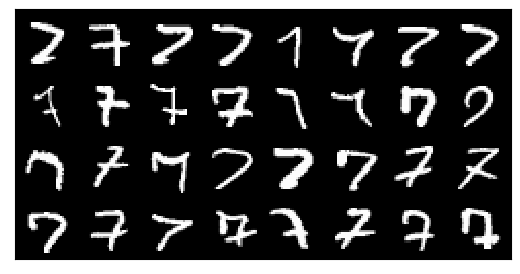 2 7 2 7 1 7 7 7
7 7 7 7 7 7 7
7 7 7 7 2 7 7 7
7 7 7 7 7 7 7 7